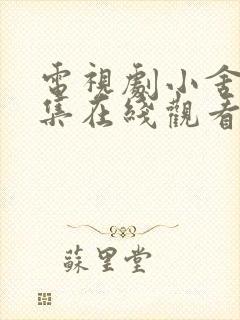 電視劇小舍
集在綫觀看
蘇里堂